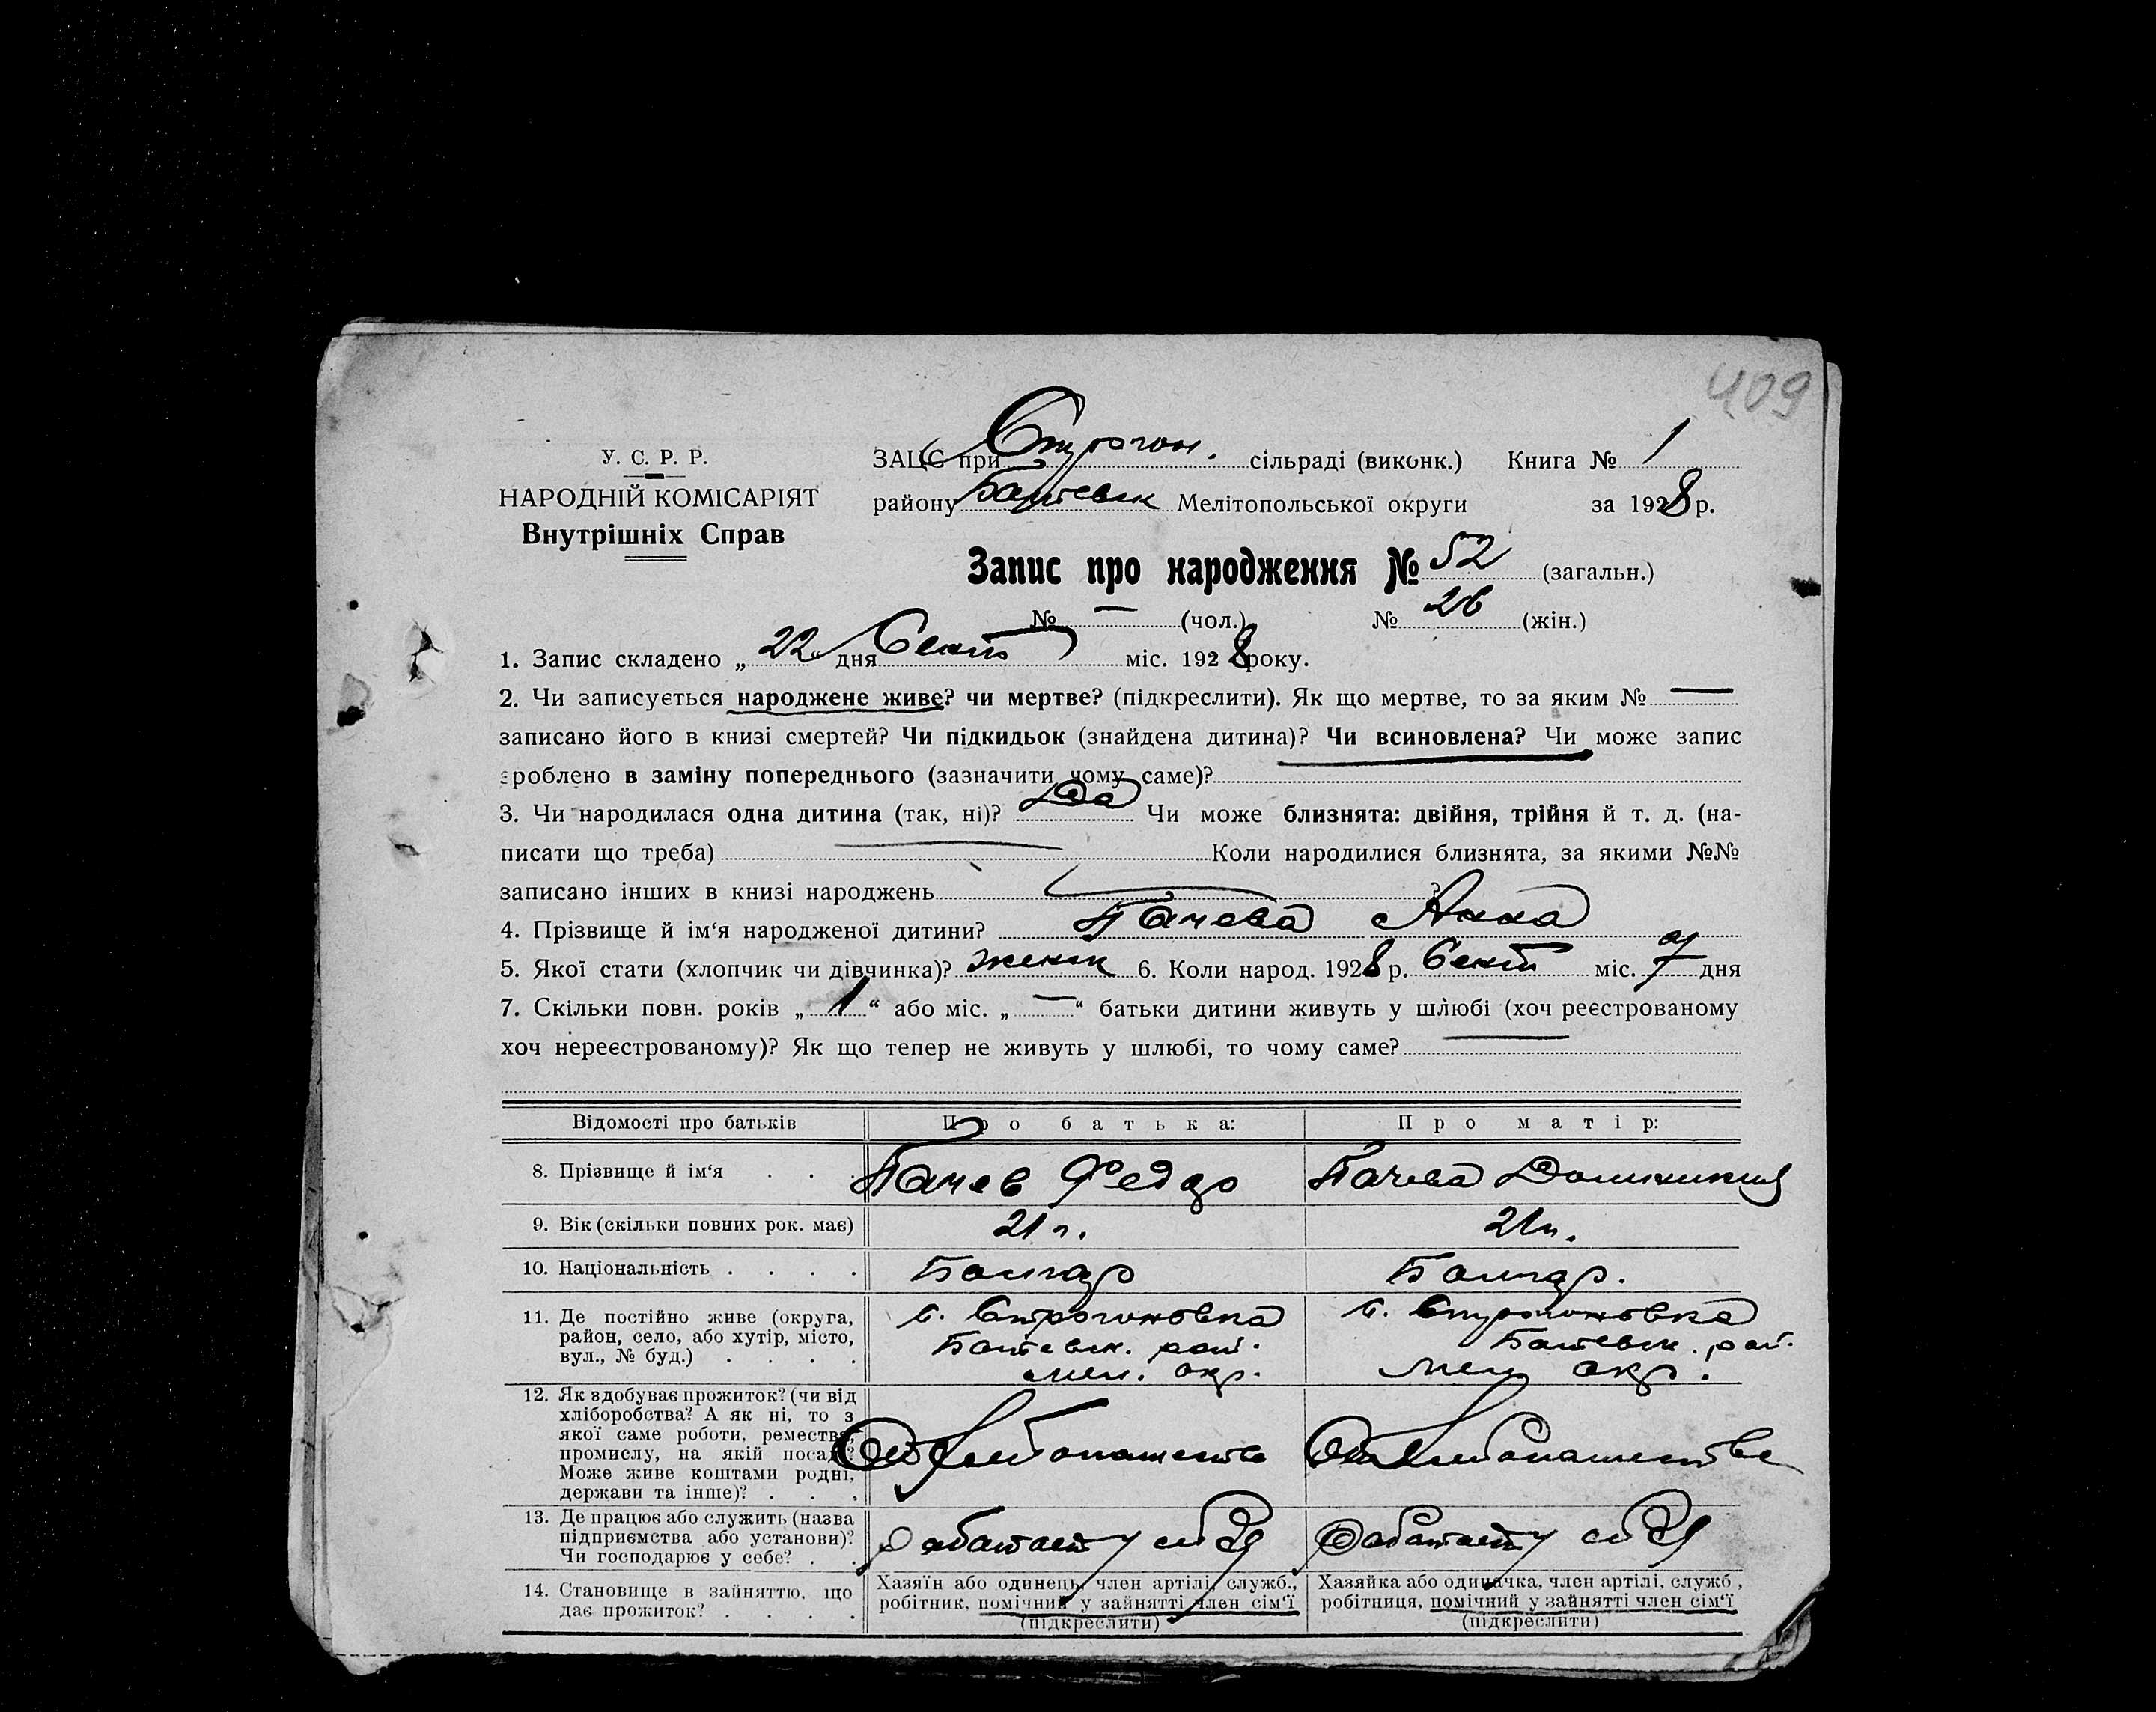 409
У. С. Р. Р.
НАРОДНІЙ КОМІСАРІЯТ
Внутрішніх Справ
ЗАЦС при Строгон. сільраді (виконк.) Книга № 1
району Ботевск Мелітопольської округи за 1928 р.
Запис про народження № 52 (загальн.)
№ — (чол.) № 26 (жін.)
1. Запис складено „22“ дня Сент міс. 1928 року.
2. Чи записується народжене живе? чи мертве? (підкреслити). Як що мертве, то за яким № —
записано його в книзі смертей? Чи підкидьок (знайдена дитина)? Чи всиновлена? Чи може запис
зроблено в заміну попереднього (зазначити чому саме)?
3. Чи народилася одна дитина (так, ні)? Да Чи може близнята: двійня, трійня й т. д. (на-
писати що треба) — Коли народилися близнята, за якими №№
записано інших в книзі народжень — ?
4. Прізвище й ім‘я народженої дитини? Пачева Анна
5. Якої стати (хлопчик чи дівчинка)? женск 6. Коли народ. 1928 р. Сент міс. 7 дня
7. Скільки повн. років „1“ або міс. „—“ батьки дитини живуть у шлюбі (хоч реєстрованому
хоч нереєстрованому)? Як що тепер не живуть у шлюбі, то чому саме? —
Відомості про батьків Про батька: Про матір:
8. Прізвище й ім‘я . . . Пачев Федор Пачева Домникия
9. Вік (скільки повних рок. має) 21 л. 21 л.
10. Національність . . . . Болгар Болгар.
11. Де постійно живе (округа, район, село, або хутір, місто, вул., № буд.) . . . . с. Строгоновка Ботевск. рай. мел. окр. с. Строгоновка Ботевск. рай. мел окр.
12. Як здобуває прожиток? (чи від хліборобства? А як ні, то з якої саме роботи, ремества, промислу, на якій посаді? Може живе коштами родні, держави та інше)? . . . От хлебопашества От хлебопашества
13. Де працює або служить (назва підприємства або установи)? Чи господарює у себе? . . Работает у себя Работает у себя
14. Становище в зайняттю, що дає прожиток? . . . . Хазяїн або одинець, член артілі, служб., робітник, помічний у зайнятті член сім‘ї (підкреслити) Хазяйка або одиначка, член артілі, служб, робітниця, помічний у зайнятті член сім‘ї (підкреслити)